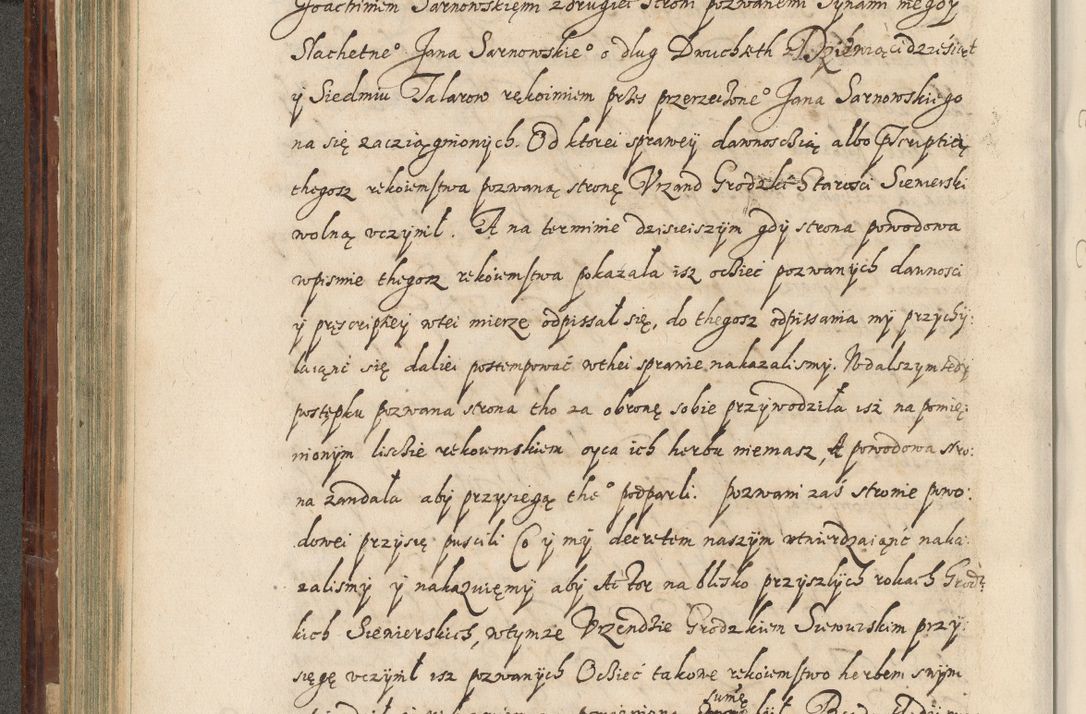 Joachimem Sarnowskięmi z drugiei stroni pozwanemi Synami niegdy
Slachetne° Jana Sarnowskie° o dlug Dwuchseth Dziewiąćidzieśiąt
y Siedmiu Talarow rękoimiem przes przerzeczone° Jana Sarnowskiego
na się zaciągnionych. Od ktorei sprawey dawnoschią albo Pscriptią
thegosz rękoiemstwa pozwaną stronę Vrzand Grodzki Starości Siewierski
wolną vczynił. A na terminie dzisieiszym gdy strona powodowa
wpismie thegosz rękoiemstwa pokazała isz ociec pozwanych dawnosci
y pręscripthey wtei mierze odpissał się, do thegosz odpissania my przychy:
laiąnć się daliei postempować wthei sprawie nakazalismy. W dalszym tedy
postępku pozwana strona tho za obronę sobie przywodziła isz na pomię:
nionym lischie rękoiemskiem oyca ich herbu niemasz, A powodowa stro:
na żandała aby przysięgą the° podparli. pozwani zaś stronie powo:
dowei przysię puscili Co y my decretem naszym vtwierdzaiąnć naka:
zalismy y nakazuięmy aby Actor na blisko przyszłych rokach Grodz:
kich Siewierskich, wtymze Vrzendzie Grodzkiem Siewierskim przy:
sięgę vczynił isz pozwanych Ociec takowe rękoiemstwo herbem swym
sumę